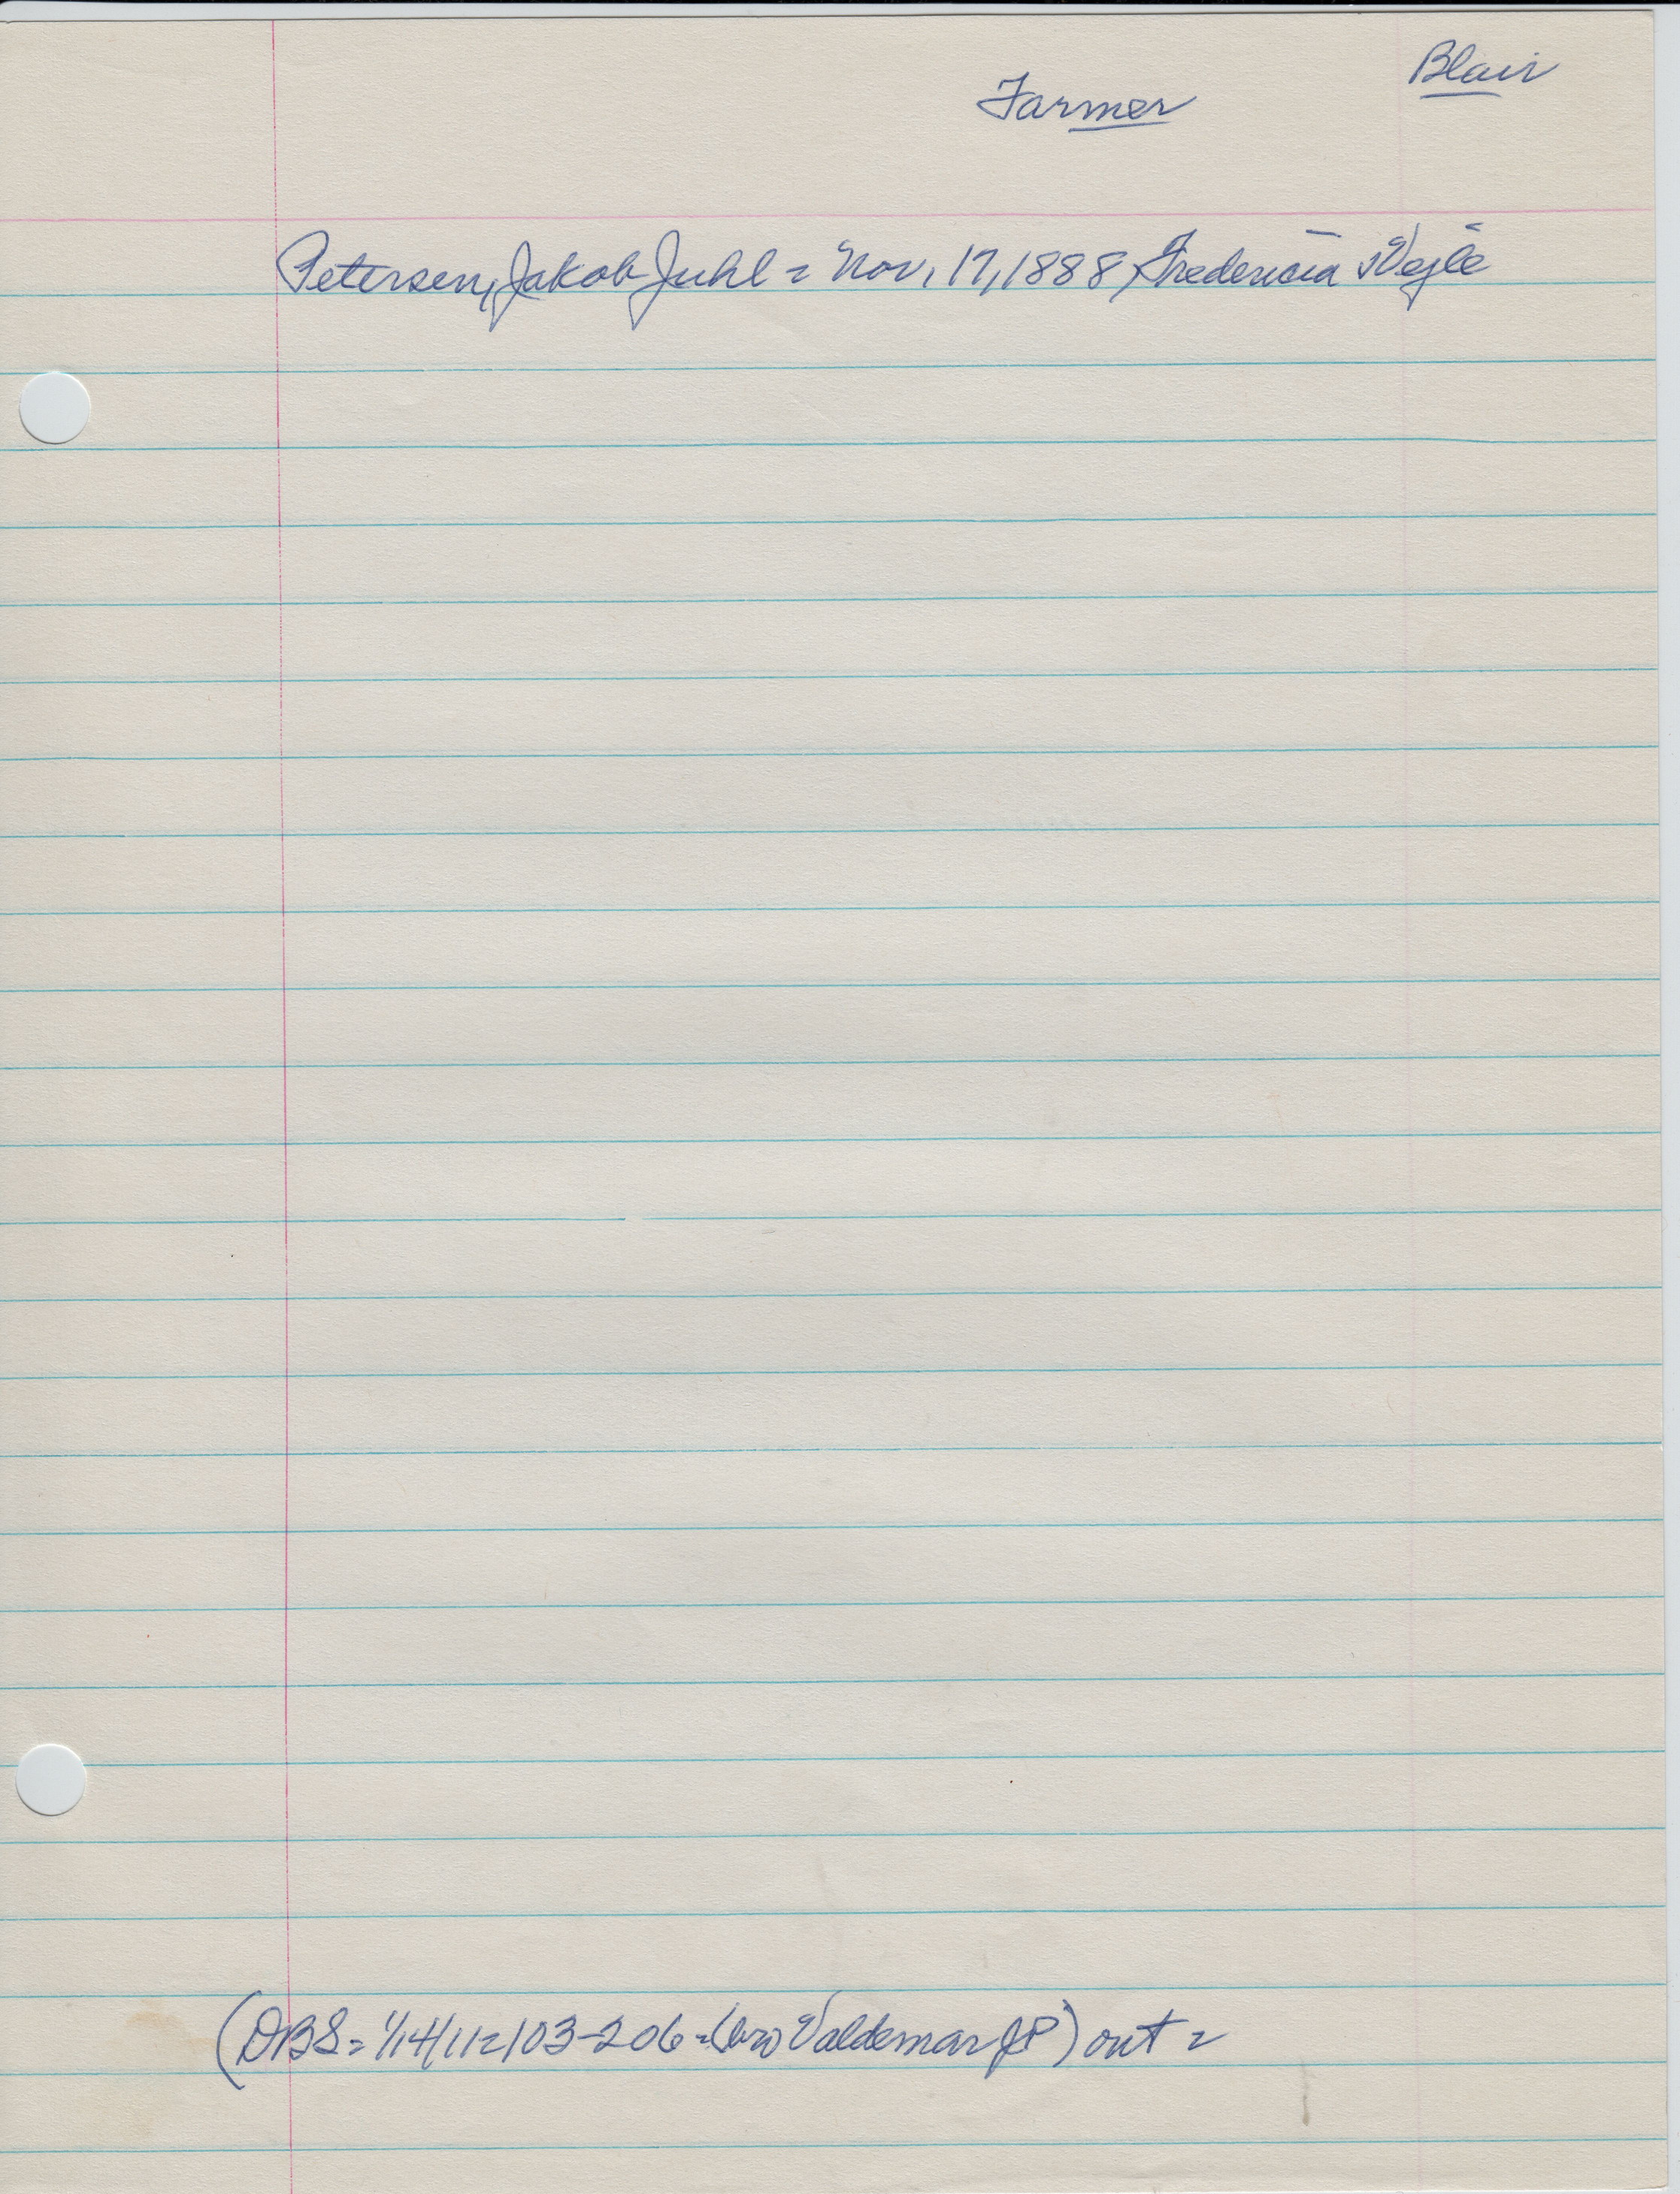 Blair
Farmer
Petersen, Jakob Juhl = Nov. 17, 1888, Fredericia, Vejle
(DBS = 1/14/11 = 103-206 = (bro Valdemar JP) out =